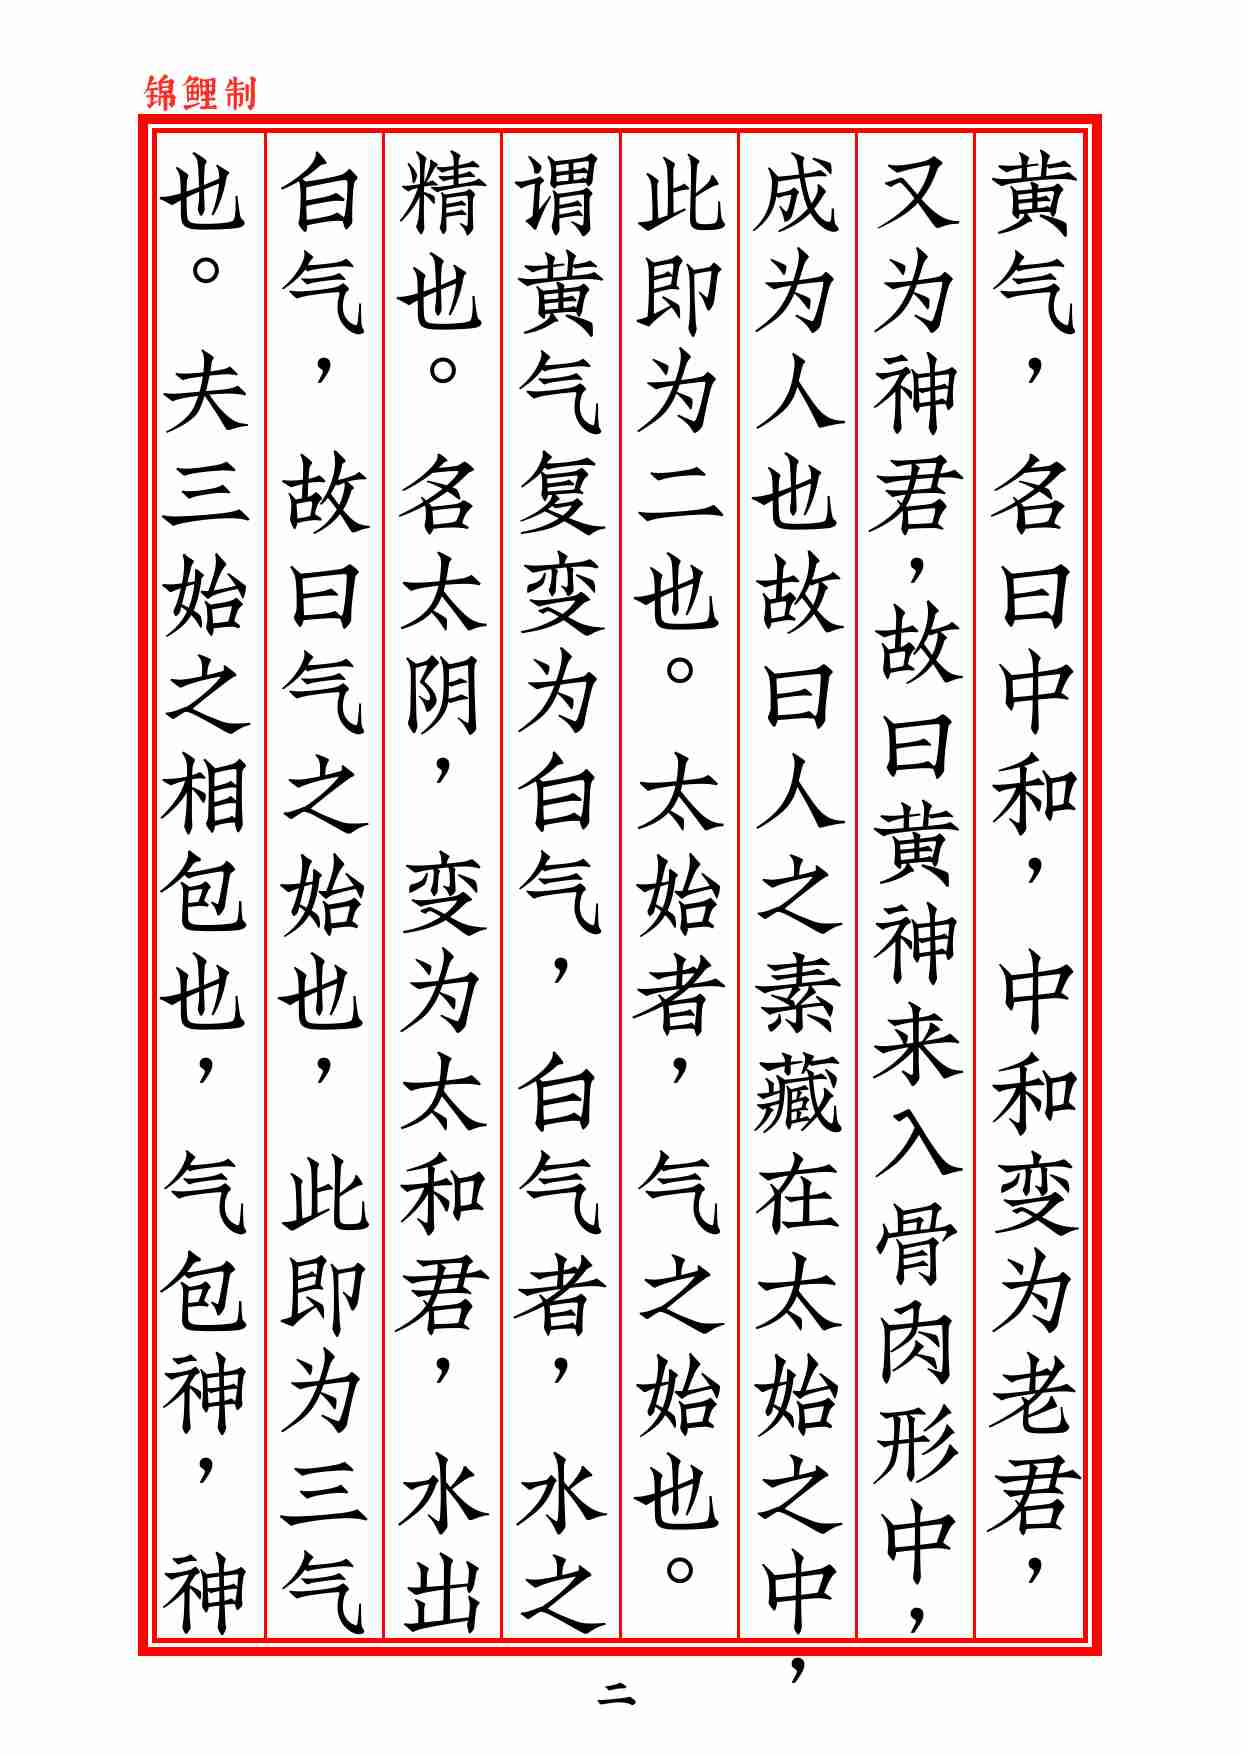 锦鲤制
黄气，名曰中和，中和变为老君，
又为神君，故曰黄神来入骨肉形中，
成为人也故曰人之素藏在太始之中，
此即为二也。太始者，气之始也。
谓黄气复变为白气，白气者，水之
精也。名太阴，变为太和君，水出
白气，故曰气之始也，此即为三气
也。夫三始之相包也，气包神，神
二